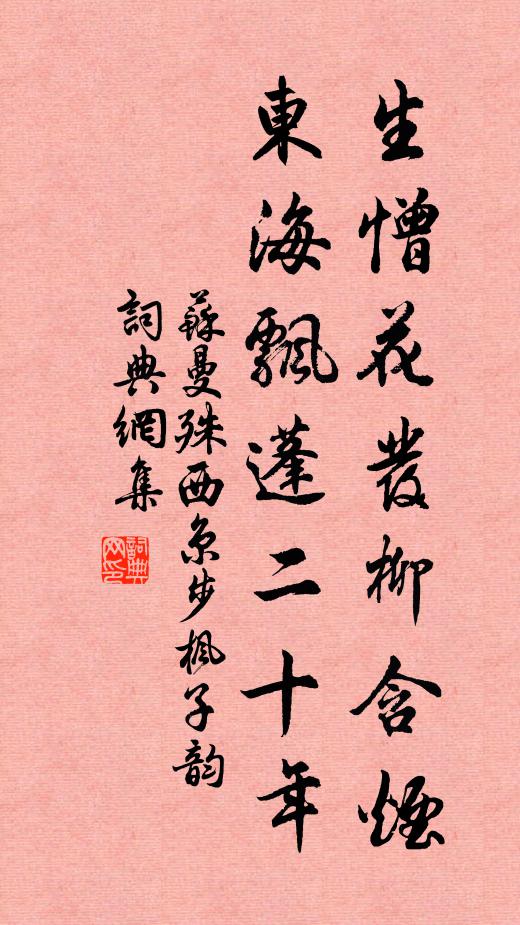 生憎花發柳含煙
東海飄蓬二十年
蘇曼殊西京步楓子韻
詞典網集
詞典網印